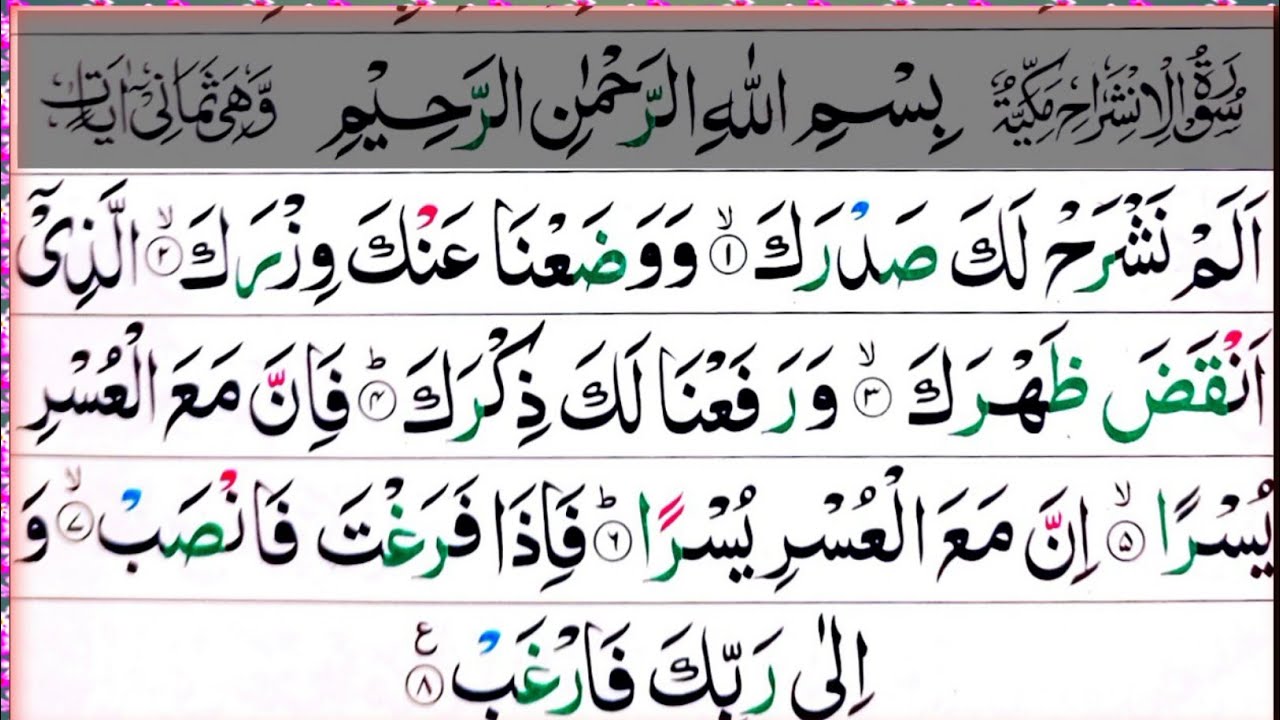 سُوْرَةُ الْاِنْشِرَاحِ مَكِّيَّةٌ بِسْمِ اللّٰهِ الرَّحْمٰنِ الرَّحِيْمِ وَّهِىَ ثَمَانِىْ اٰيَاتٍ
اَلَمْ نَشْرَحْ لَكَ صَدْرَكَ ۙ۱ وَوَضَعْنَا عَنْكَ وِزْرَكَ ۙ۲ الَّذِىْۤ
اَنْقَضَ ظَهْرَكَ ۙ۳ وَرَفَعْنَا لَكَ ذِكْرَكَ ؕ۴ فَاِنَّ مَعَ الْعُسْرِ
يُسْرًا ۙ۵ اِنَّ مَعَ الْعُسْرِ يُسْرًا ؕ۶ فَاِذَا فَرَغْتَ فَانْصَبْ ۙ۷ وَ
اِلٰى رَبِّكَ فَارْغَبْ ۸ ع